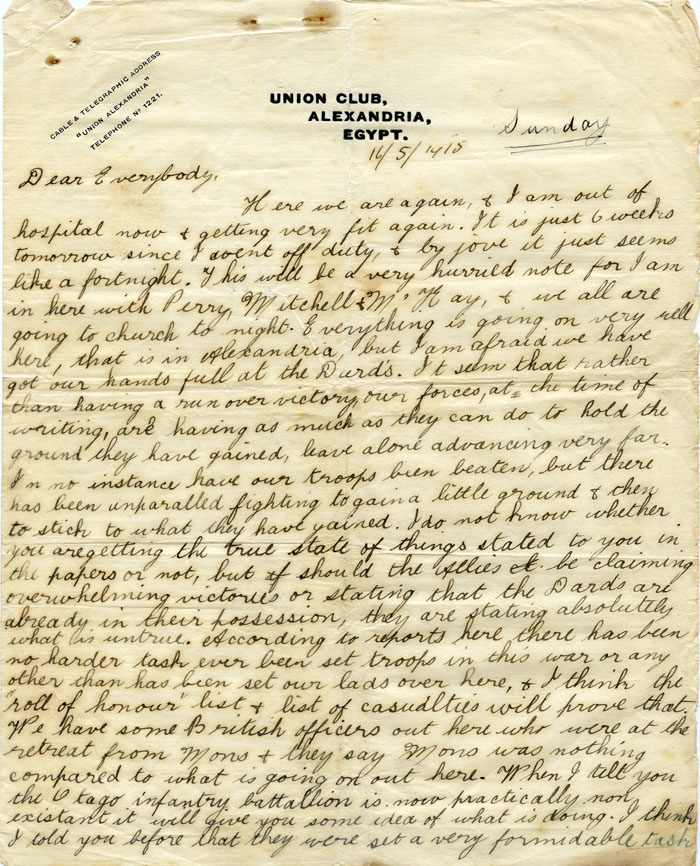 CABLE & TELEGRAPHIC ADDRESS
"UNION ALEXANDRIA"
TELEPHONE No 1221.
UNION CLUB,
ALEXANDRIA,
EGYPT.
Sunday
16/5/1915
Dear Everybody,
Here we are again, & I am out of
hospital now & getting very fit again. It is just 6 weeks
tomorrow since I went off duty, & by jove it just seems
like a fortnight. This will be a very hurried note for I am
in here with Perry, Mitchell & Mc Hay, & we all are
going to church to night. Everything is going on very well
here, that is in Alexandria, but I am afraid we have
got our hands full at the Dards. It seem that rather
than having a run over victory, our forces, at the time of
writing, are having as much as they can do to hold the
ground they have gained, leave alone advancing very far.
In no instance have our troops been beaten, but there
has been unparalled fighting to gain a little ground & then
to stick to what they have gained. I do not know whether
you are getting the true state of things stated to you in
the papers or not, but if should the Allies be claiming
overwhelming victories or stating that the Dards are
already in their possession, they are stating absolutely
what is untrue. According to reports here there has been
no harder task ever been set troops in this war or any
other than has been set our lads over here, & I think the
"roll of honour" list & list of casudlties will prove that.
We have some British officers out here who were at the
retreat from Mons & they say Mons was nothing
compared to what is going on out here. When I tell you
the Otago infantry battallion is now practically non
existant it will give you some idea of what is doing. I think
I told you before that they were set a very formidable task